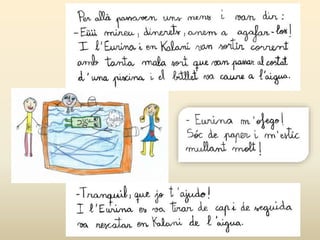 Per allà passaven uns nens i van dir:
-Eüü mireu, dinerets, anem a agafar-los!
I l'Eurina i en Kalani van sortir corrent
amb tanta mala sort que van passar al costat
d'una piscina i el bitllet va caure a l'aigua.
- Eurina m'ofego!
Sóc de paper i m'estic
mullant molt!
-Tranquil, que jo t'ajudo!
I l'Eurina es va tirar de cap i de seguida
va rescatar en Kalani de l'aigua.